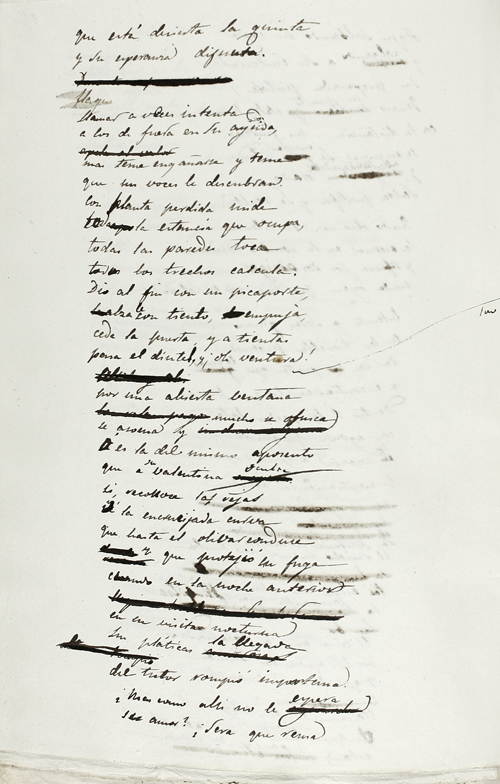 que está desierta la quinta
y su esperanza difunta.
llamar a voces intenta
a los de fuera en su ayuda,
mas teme engañarse y teme
que sus voces le descubran.
Con planta perdida mide
la estancia que ocupa,
todas las paredes toca
todos los trechos calcula.
Dió al fin con un picaporte,
alzale con tiento, empuja,
cede la puerta, y a tientas
pasa el dintel, y ¡oh ventura!
por una abierta ventana
mucho se ofusca
se asoma y
es la del mismo aposento
que a Dn Valentina oculta
si, reconoce las rejas
la encrucijada curva
que hasta el olivar conduce
y que protejió su fuga
cuando en la noche anterior
en su visita nocturna
sus pláticas la llegada
del tutor rompió importuna.
¿Mas como alli no le espera
su amor? ¿Sera que